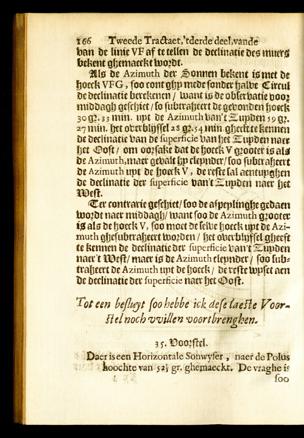 166 Tweede Tractaet, 'tderde deel, vande
van de linie VF af te tellen de declinatie des muers
bekent ghemaeckt wordt.
Als de Azimuth der Sonnen bekent is met de
hoeck VFG, soo cont ghy mede sonder halve Circul
de declinatie berekenen / want is de observatie voor
middagh geschiet / so subtraheert de gevonden hoeck
30 gr. 33 min. upt de Azimuth van't Zuyden 59 gr.
27 min. het overblijffel 28 gr. 54 min gheeft te kennen
de declinatie van de superficie van het Zuyden naer
het Oost / om oorsake dat de hoeck V grooter is als
de Azimuth, maer gevalt hy cleynder / soo subtraheert
de Azimuth upt de hoeck V, de reste sal aentuyghen
de declinatie der superficie van't Zuyden naer het
West.
Ter contrarie geschiet / soo de afpeylinghe gedaen
wordt naer middagh / want soo de Azimuth grooter
is als de hoeck V, soo moet de selve hoeck upt de Azi-
muth ghesubtraheert worden / het overblijffel gheeft
te kennen de declinatie der superficie van't Zuyden
naer't West / maer is de Azimuth cleynder / soo sub-
traheert de Azimuth upt de hoeck / de reste wyset aen
de declinatie der superficie naer het Oost.
Tot een besluyt soo hebbe ick dese laeste Voor-
stel noch vvillen voortbrenghen.
35. Voorstel.
Daer is een Horizontale Sonwyser, naer de Polus
hoochte van 52½ gr. ghemaeckt. De vraghe is
soo